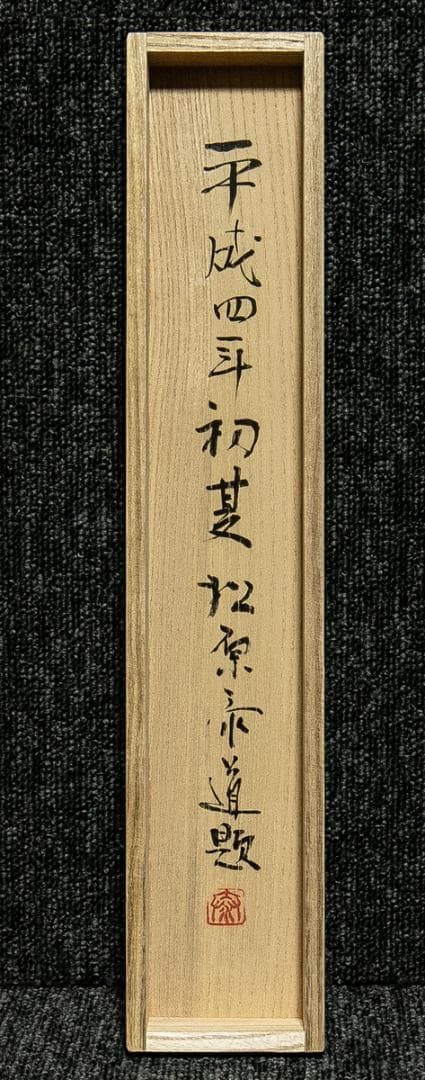 平成四年初夏 松原泰道題
泰